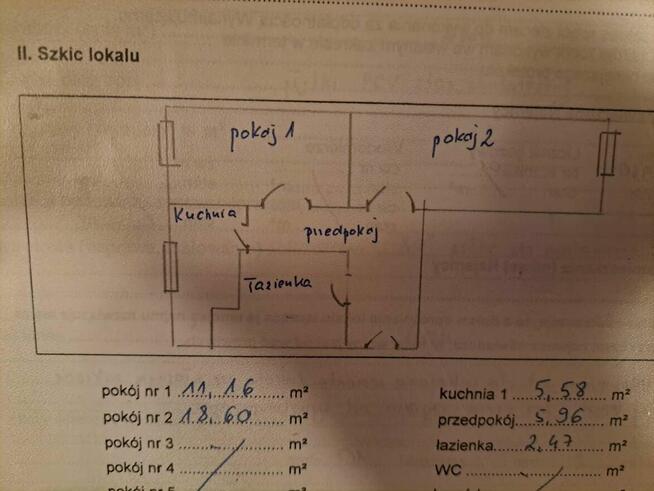 II. Szkic lokalu
pokój 1
pokój 2
Kuchnia
przedpokój
Łazienka
pokój nr 1 11,16 m²
kuchnia 1 5,58 m²
pokój nr 2 18,60 m²
przedpokój 5,96 m²
pokój nr 3 m²
łazienka 2,47 m²
pokój nr 4 m²
WC m²